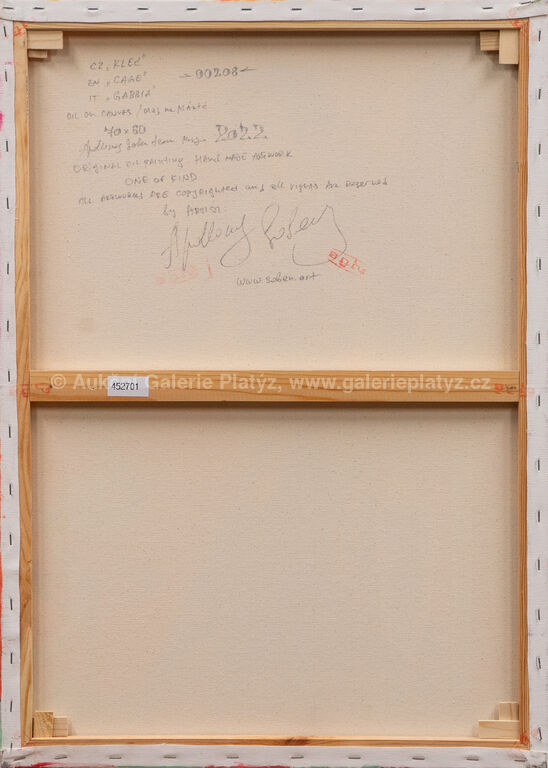 CZ „KLEC"
EN „CAGE" -00208-
IT „GABBIA"
OIL ON CANVAS / OLEJ NA PLÁTNĚ
70 x 50
Soben 2022
ORIGINAL OIL PAINTING. HAND MADE ARTWORK
ONE OF KIND
ALL ARTWORKS ARE COPYRIGHTED and all rights Are Reserved
by ARTIST
Soben
www.soben.art
© Aukční Galerie Platýz, www.galerieplatyz.cz
452701